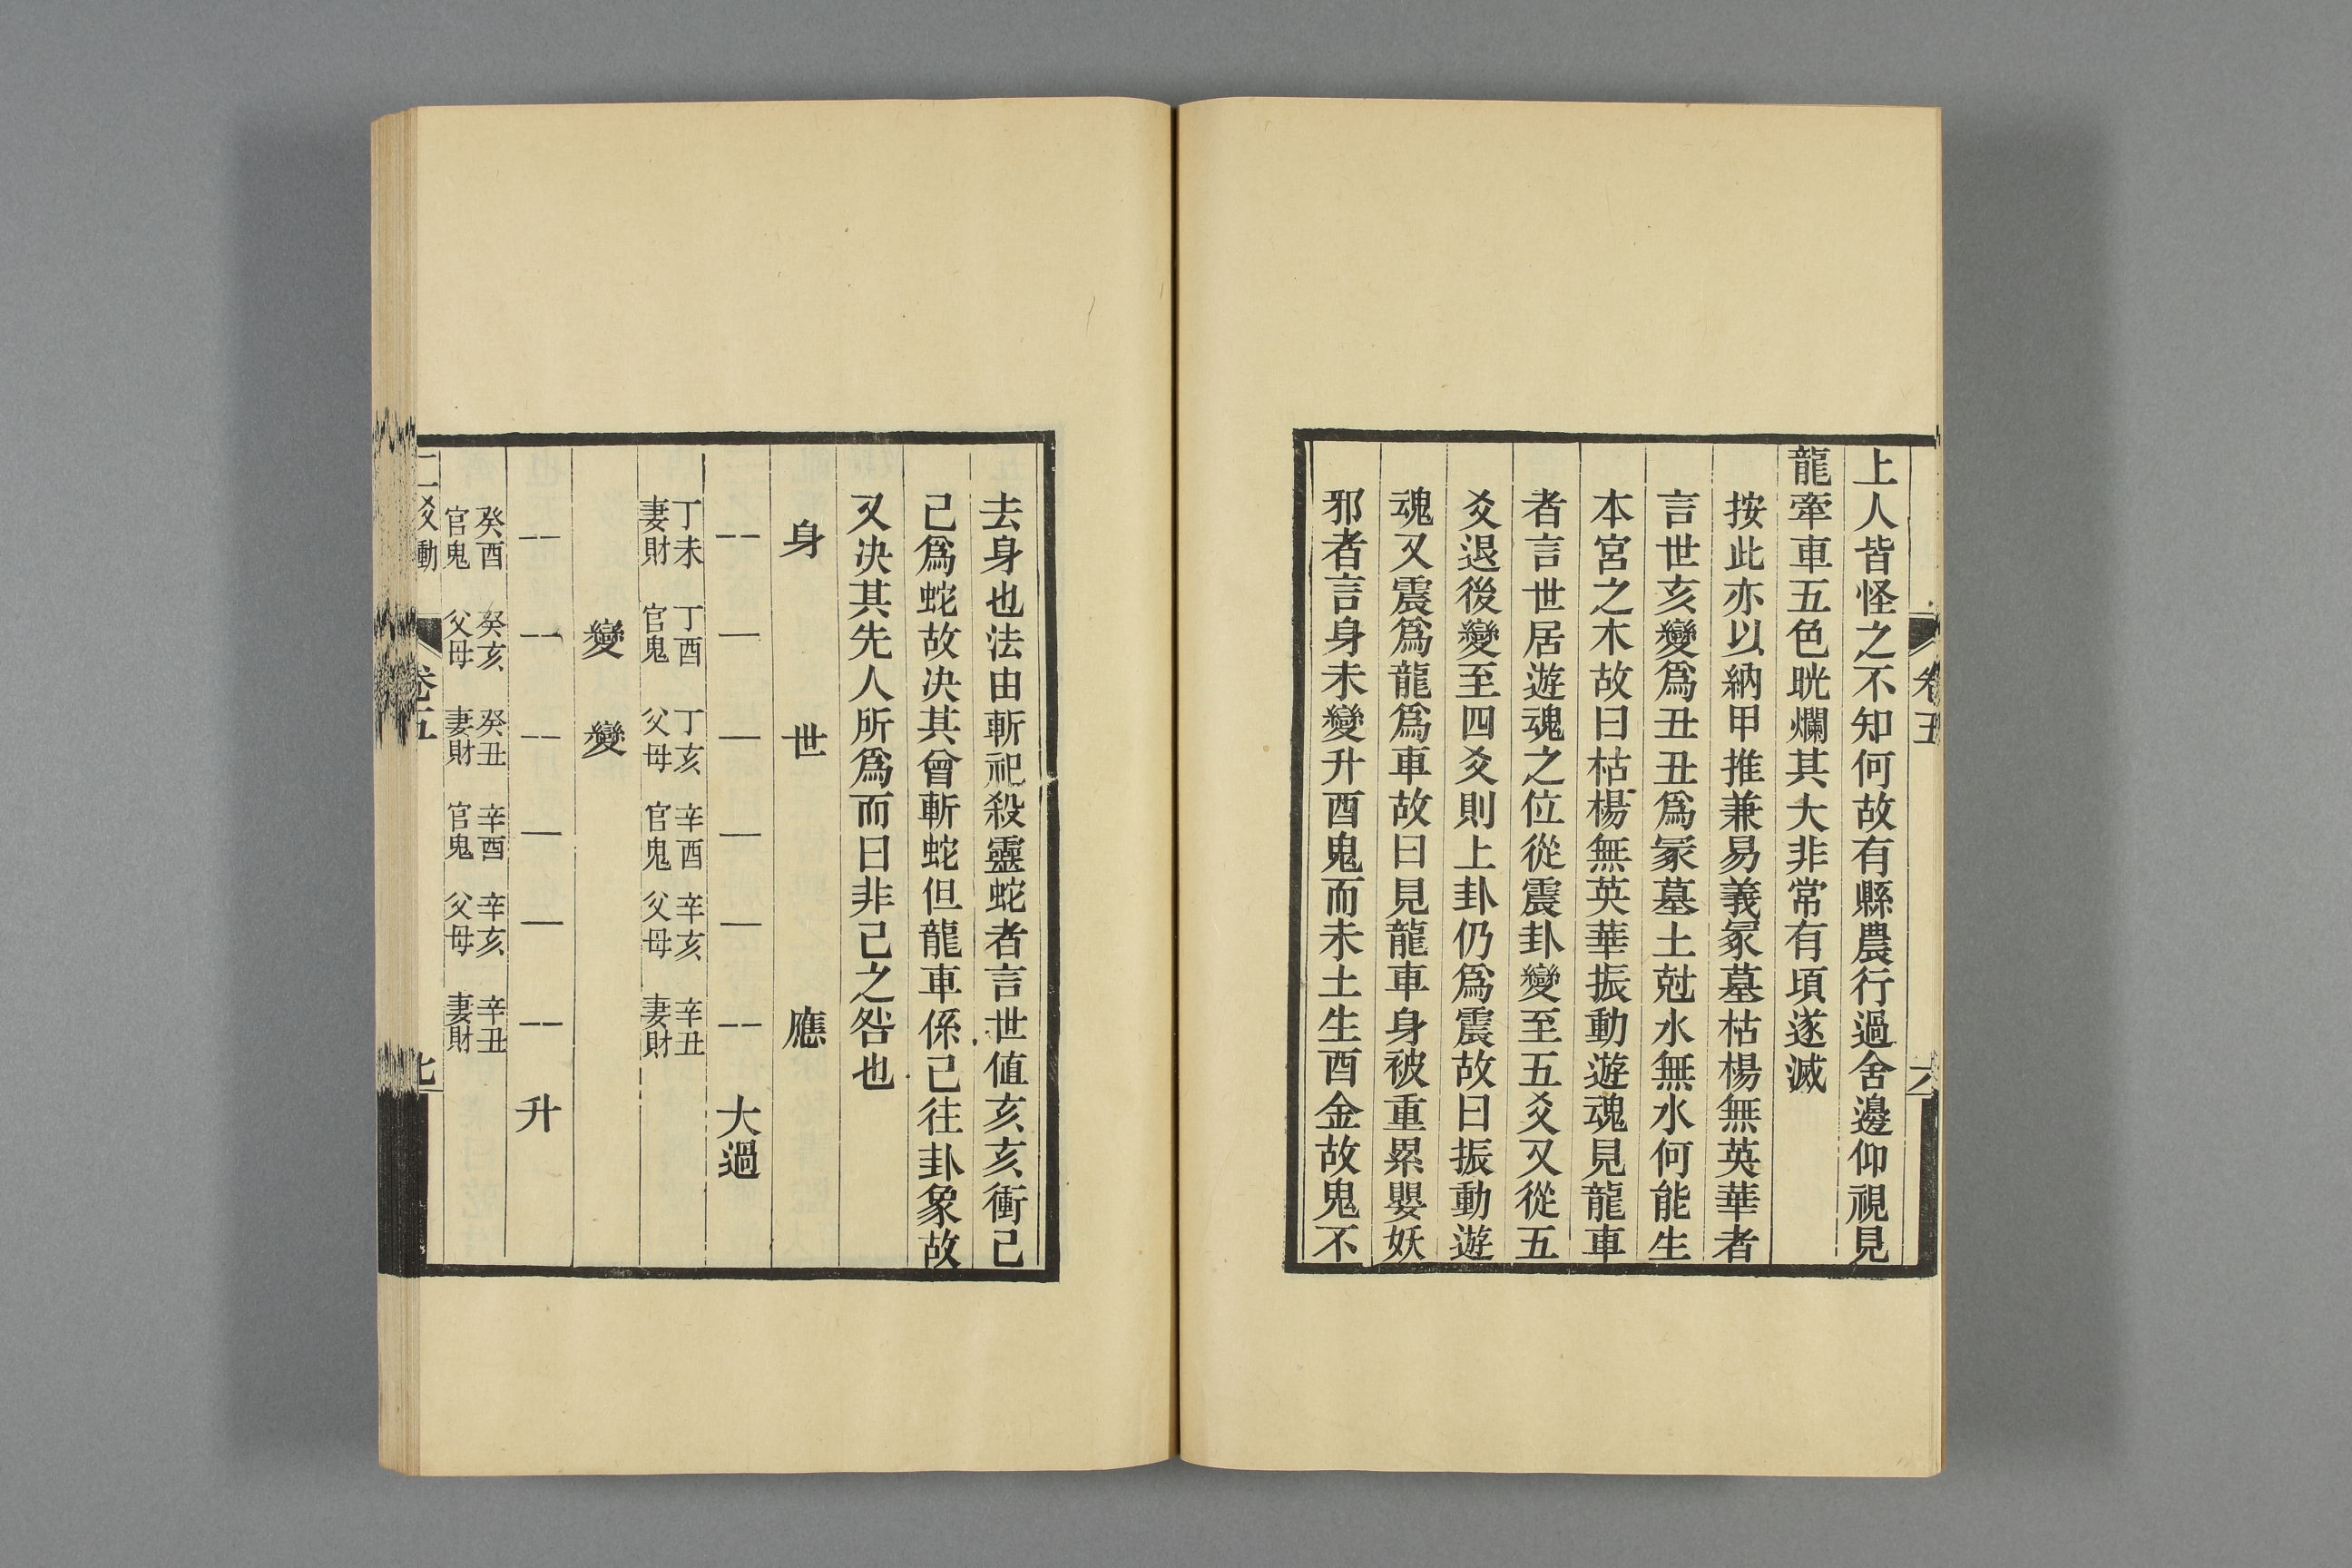 上人皆怪之不知何故有縣農行過舍邊仰視見
龍牽車五色晄爛其大非常有頃遂滅
按此亦以納甲推兼易義冢墓枯楊無英華者
言世亥變爲丑丑爲冢墓土尅水無水何能生
本宮之木故曰枯楊無英華振動遊魂見龍車
者言世居遊魂之位從震卦變至五爻又從五
爻退後變至四爻則上卦仍爲震故曰振動遊
魂又震爲龍爲車故曰見龍車身被重累嬰妖
邪者言身未變升酉鬼而未土生酉金故鬼不
卷五
六
去身也法由斬祀殺靈蛇者言世值亥亥衝己
己爲蛇故決其曾斬蛇但龍車係己往卦象故
又決其先人所爲而曰非己之咎也
身 世 應
大過
丁未 丁酉 丁亥 辛酉 辛亥 辛丑
妻財 官鬼 父母 官鬼 父母 妻財
變 變
升
癸酉 癸亥 癸丑 辛酉 辛亥 辛丑
官鬼 父母 妻財 官鬼 父母 妻財
卷五
七